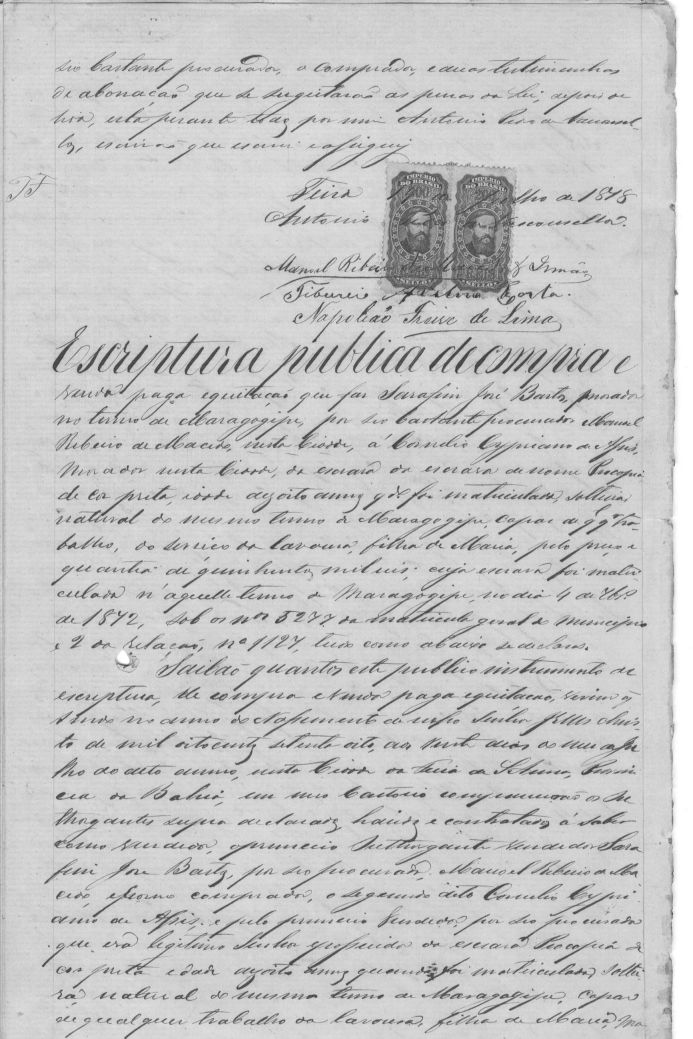 seo bastante procurador, o comprador, e duas testimunhas
de abonação que se sugeitarão as penas da Lei, depois de
lida, esta perante elles por mim Antonio
escrivão que escrevi e assignej
TF
Feira de 1878
Antonio Vasconcellos.
IMPERIO DO BRASIL
IMPERIO DO BRASIL
Manoel Ribeiro de & Irmão
Tiburcio Costa.
Napoleão Freire de Lima
Escriptura publica de compra e
venda paga equitação que faz Sarafim José Bartz, morador
no termo de Maragogipe, por seo bastante procurador Manoel
Ribeiro de Macedo, nesta Cidade, á Cornelio Cypriano de Assis,
morador nesta Cidade, da escrava da escrava de nome Procopia
de cor preta, idade dezoito annos qdo foi matriculada, solteira
natural do mesmo termo de Maragogipe, capaz de qq tra-
balho, do serviço da lavoura, filha de Maria, pelo preço e
quantia de quinhentos mil reis: cuja escrava foi matri-
culada n'aquelle termo de Maragogipe, no dia 4 de
de 1872, sob os nos 5277 da matricula geral do municipio
e 2 da relação, nº 1127, tudo como abaixo se declara.
Saibão quantos este publico instrumento de
escriptura, de compra e venda paga equitação, virem q
sendo no anno do Nascimento de nosso Senhor Jesus Chris-
to de mil oitocentos setenta oito, aos vinte dias do mez de Ju-
lho do dito anno, nesta Cidade da Feira de Santa Anna, Provin-
cia da Bahia, em meo Cartorio comparecerão os Ou-
thorgantes supra declarados, havidos e contratados, á saber
como vendedor, o primeiro outhorgante vendedor Sara
fim José Bartz, por seo procurador, Manoel Ribeiro de Ma-
cedo, e como comprador, o segundo dito Cornelio Cypri-
ano de Assis: e pelo primeiro vendedor, por seo procurador
que era legitimo Senhor e possuidor da escrava Procopia de
cor preta idade dezoito annos quando foi matriculada, soltei-
ra natural do mesmo termo de Maragogipe, capaz
de qualquer trabalho da lavoura, filha de Maria,